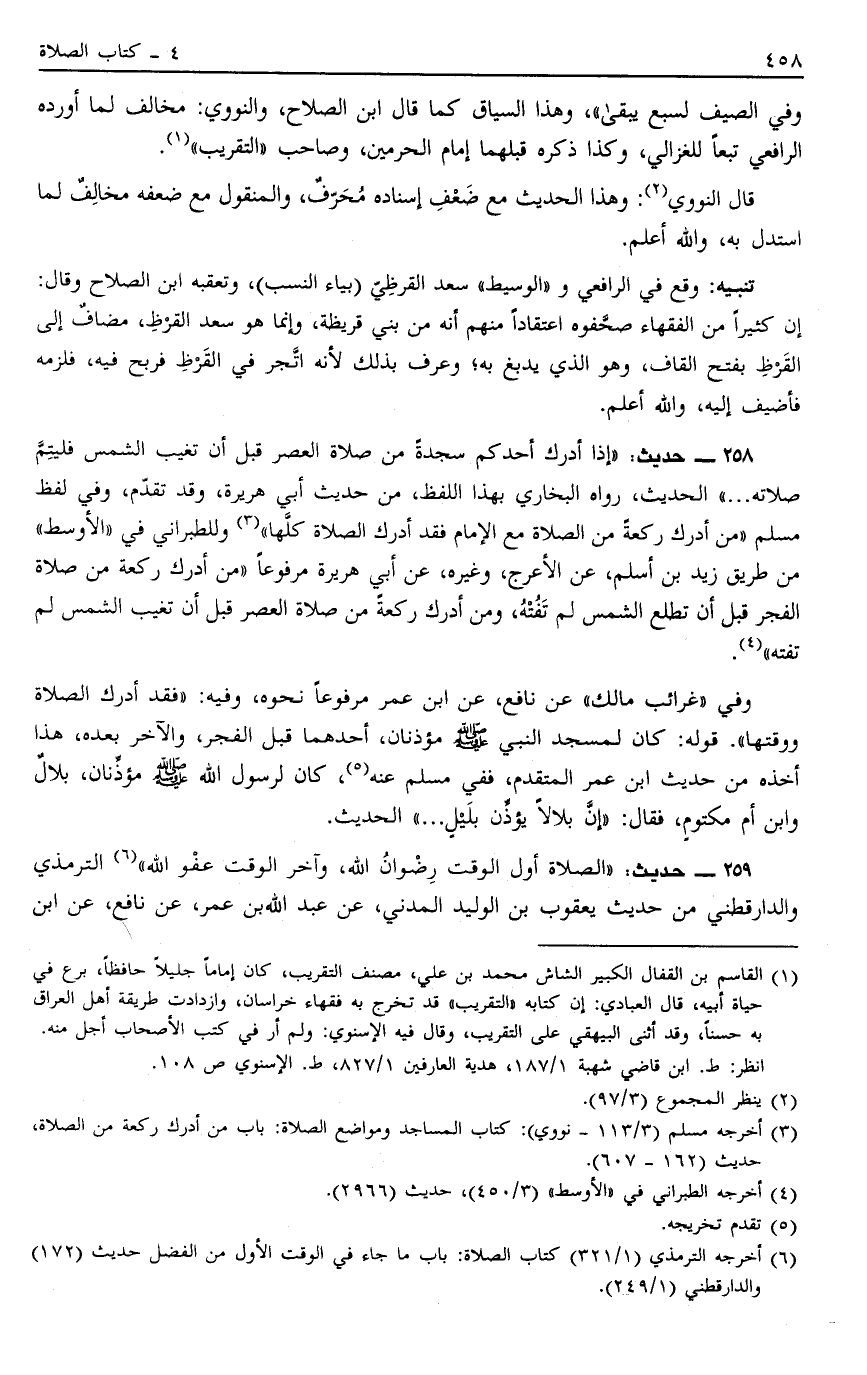 ٤٥٨
٤ ـ كتاب الصلاة
وفي الصيف لسبع يبقىٰ»، وهذا السياق كما قال ابن الصلاح، والنووي: مخالف لما أورده
الرافعي تبعاً للغزالي، وكذا ذكره قبلهما إمام الحرمين، وصاحب «التقريب»(١).
قال النووي(٢): وهذا الحديث مع ضَعْفِ إسناده مُحَرّفٌ، والمنقول مع ضعفه مخالِفٌ لما
استدل به، والله أعلم.
تنبيه: وقع في الرافعي و «الوسيط» سعد القرظِيّ (بياء النسب)، وتعقبه ابن الصلاح وقال:
إن كثيراً من الفقهاء صحَّفوه اعتقاداً منهم أنه من بني قريظة، وإنما هو سعد القرَظِ، مضافٌ إلى
القَرَظِ بفتح القاف، وهو الذي يدبغ به؛ وعرف بذلك لأنه اتَّجر في القَرَظِ فربح فيه، فلزمه
فأضيف إليه، والله أعلم.
٢٥٨ ـ حديث: «إذا أدرك أحدكم سجدةً من صلاة العصر قبل أن تغيب الشمس فليتِمَّ
صلاته...» الحديث، رواه البخاري بهذا اللفظ، من حديث أبي هريرة، وقد تقدّم، وفي لفظ
مسلم «من أدرك ركعةً من الصلاة مع الإمام فقد أدرك الصلاة كلَّها»(٣) وللطبراني في «الأوسط»
من طريق زيد بن أسلم، عن الأعرج، وغيره، عن أبي هريرة مرفوعاً «من أدرك ركعة من صلاة
الفجر قبل أن تطلع الشمس لم تَفُتْهُ، ومن أدرك ركعةً من صلاة العصر قبل أن تغيب الشمس لم
تفته»(٤).
وفي «غرائب مالك» عن نافع، عن ابن عمر مرفوعاً نحوه، وفيه: «فقد أدرك الصلاة
ووقتها». قوله: كان لمسجد النبي ﷺ مؤذنان، أحدهما قبل الفجر، والآخر بعده، هذا
أخذه من حديث ابن عمر المتقدم، ففي مسلم عنه(٥)، كان لرسول الله ﷺ مؤذِّنان، بلالٌ
وابن أم مكتومٍ، فقال: «إنَّ بلالاً يؤذِّن بلَيْلٍ...» الحديث.
٢٥٩ ـ حديث: «الصلاة أول الوقت رِضْوانُ الله، وآخر الوقت عفْو الله»(٦) الترمذي
والدارقطني من حديث يعقوب بن الوليد المدني، عن عبد الله بن عمر، عن نافع، عن ابن
(١) القاسم بن القفال الكبير الشاش محمد بن علي، مصنف التقريب، كان إماماً جليلاً حافظاً، برع في
حياة أبيه، قال العبادي: إن كتابه «التقريب» قد تخرج به فقهاء خراسان، وازدادت طريقة أهل العراق
به حسناً، وقد أثنى البيهقي على التقريب، وقال فيه الإسنوي: ولم أر في كتب الأصحاب أجل منه.
انظر: ط. ابن قاضي شهبة ١٨٧/١، هدية العارفين ٨٢٧/١، ط. الإسنوي ص ١٠٨.
(٢) ينظر المجموع (٩٧/٣).
(٣) أخرجه مسلم (١١٣/٣ ـ نووي): كتاب المساجد ومواضع الصلاة: باب من أدرك ركعة من الصلاة،
حديث (١٦٢ ـ ٦٠٧).
(٤) أخرجه الطبراني في «الأوسط» (٤٥٠/٣)، حديث (٢٩٦٦).
(٥) تقدم تخريجه.
(٦) أخرجه الترمذي (٣٢١/١) كتاب الصلاة: باب ما جاء في الوقت الأول من الفضل حديث (١٧٢)
والدارقطني (٢٤٩/١).